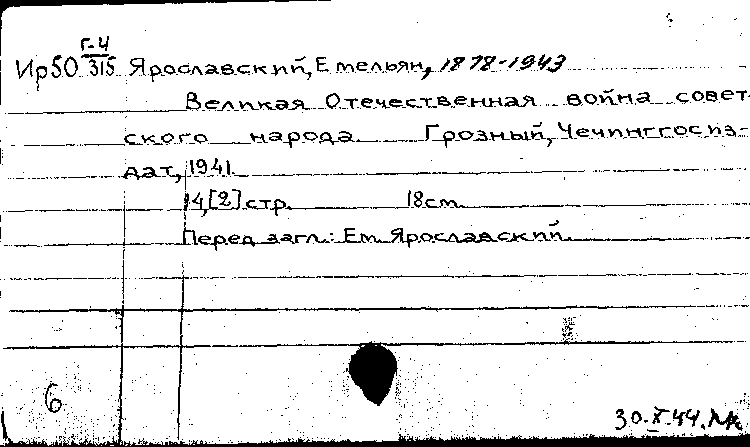 Г-4
Ир50 315 Ярославский, Емельян, 1878-1943
Великая Отечественная война совет-
ского народа Грозный, Чечинггосиз-
дат, 1941.
14,[2] стр. 18 см.
Перед загл.: Ем. Ярославский.
6
30.X.44.